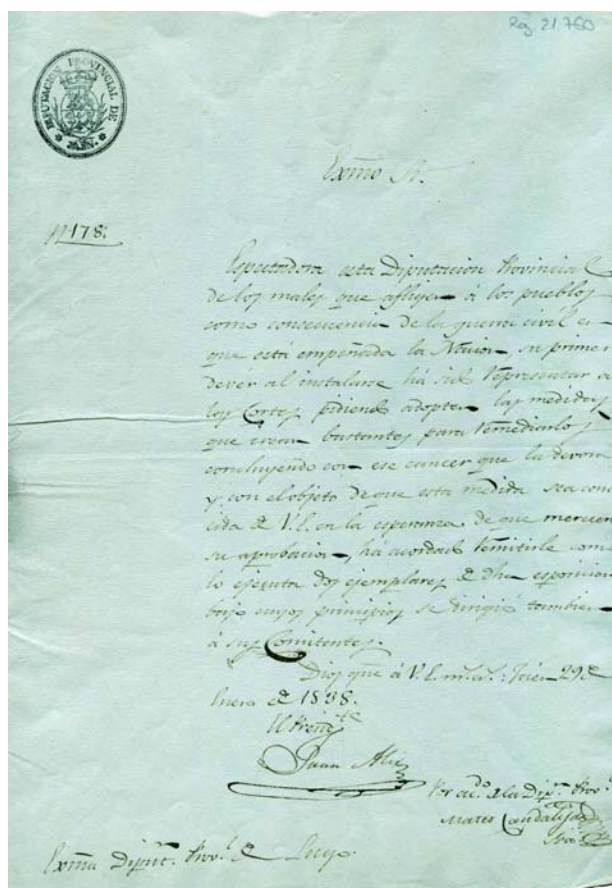 Reg. 21.760
DIPUTACION PROVINCIAL DE JAEN.
Exmo Sr.
Nº 178.
Espectadora esta Diputacion Provincial
de los males que aflijen á los pueblos
como consecuencia de la guerra civil en
que está empeñada la Nacion, su primer
devér al instalarse há sido representar a
las Cortes pidiendo adopten las medidas
que crean bastantes para remediarlos
concluyendo con ese cancer que la devora
y con el objeto de que esta medida sea cono
cida de V.E. en la esperanza de que merecera
su aprobacion, ha acordado remitirle como
lo ejecuta dos ejemplares de dha esposicion
bajo cuyos principios se dirigió tambien
á sus Comitentes.
Dios gue á V.E. m.s a.s Jaén 29 de
Enero de 1838.
El Preste
Juan
Por acdo de la Dipon Provl
Mateo Candalija
Srio
Exma Diput. Provl de Lugo.